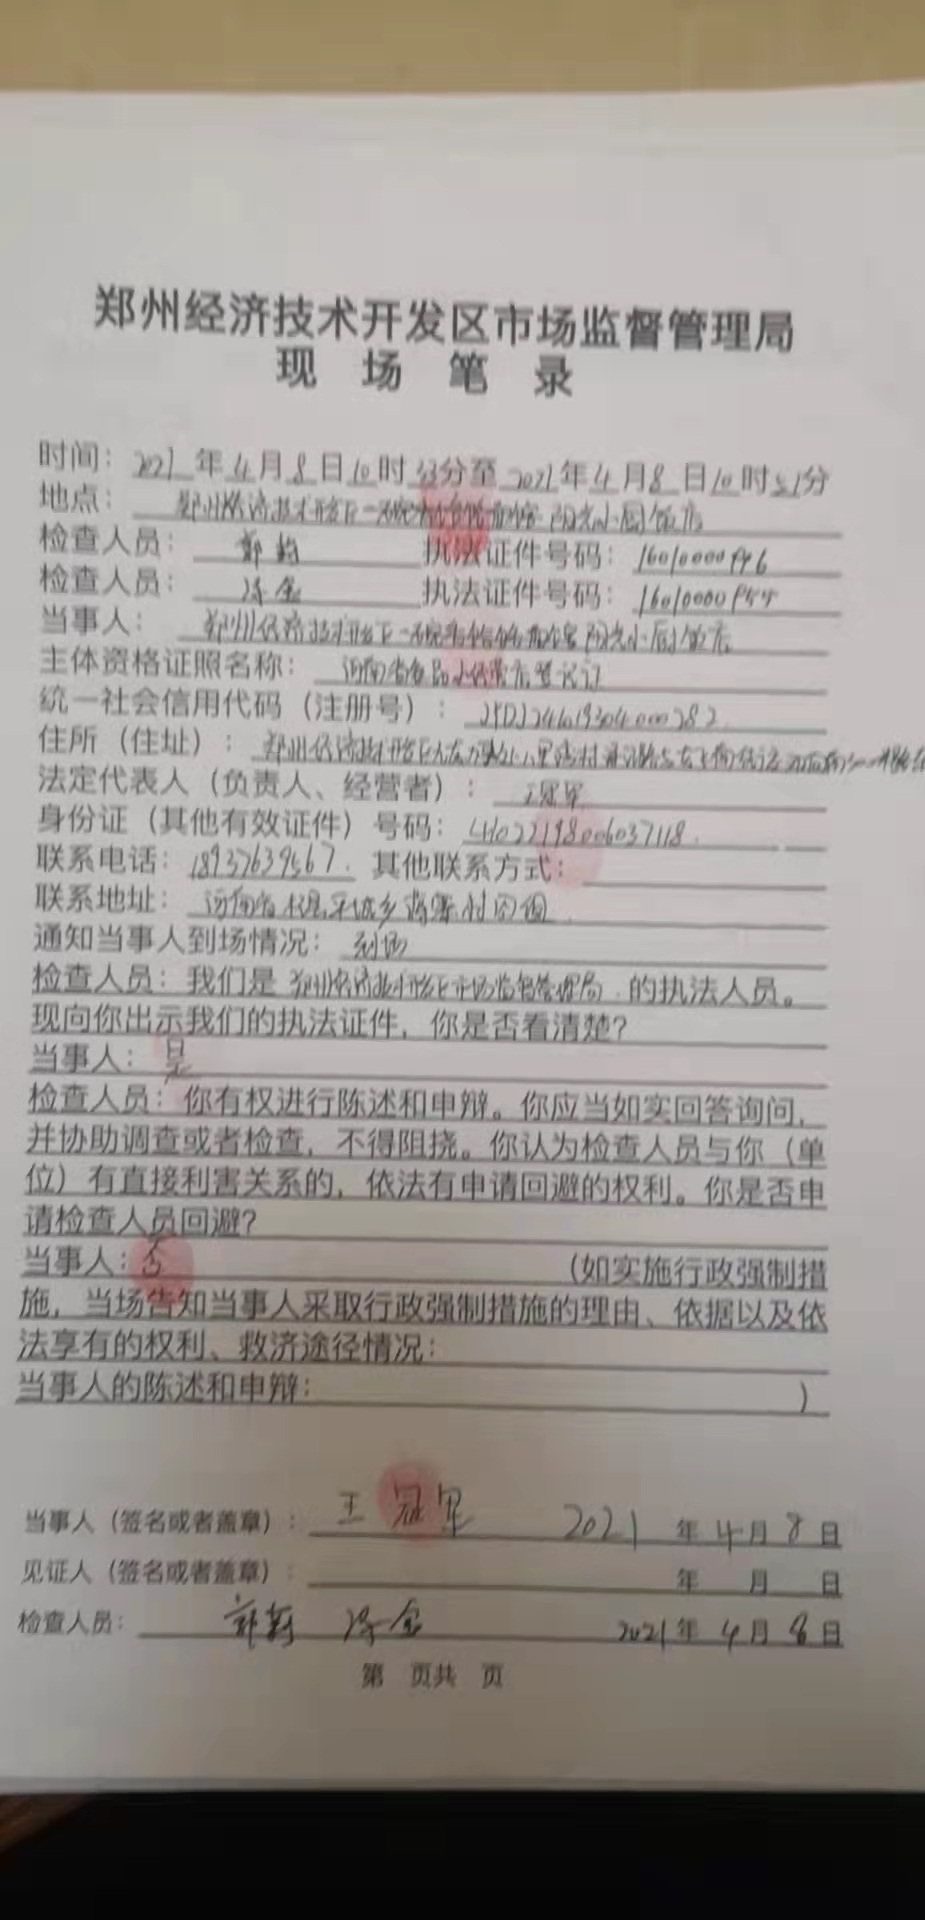 郑州经济技术开发区市场监督管理局
现 场 笔 录
时间：2021年4月8日10时33分至2021年4月8日10时51分
地点：郑州经济技术开发区一碗 阳光小厨饭店
检查人员： 执法证件号码：16010000
检查人员： 执法证件号码：16010000
当事人：郑州经济技术开发区一碗 阳光小厨饭店
主体资格证照名称：河南省食品小经营店登记证
统一社会信用代码（注册号）：
住所（住址）：郑州经济技术开发区
法定代表人（负责人、经营者）：王冠军
身份证（其他有效证件）号码：
联系电话：18937639567 其他联系方式：
联系地址：河南省杞县平城乡 村四组
通知当事人到场情况：到场
检查人员：我们是郑州经济技术开发区市场监督管理局的执法人员。
现向你出示我们的执法证件，你是否看清楚？
当事人：是
检查人员：你有权进行陈述和申辩。你应当如实回答询问，
并协助调查或者检查，不得阻挠。你认为检查人员与你（单
位）有直接利害关系的，依法有申请回避的权利。你是否申
请检查人员回避？
当事人：否 （如实施行政强制措
施，当场告知当事人采取行政强制措施的理由、依据以及依
法享有的权利、救济途径情况：
当事人的陈述和申辩： ）
当事人（签名或者盖章）：王冠军 2021年4月8日
见证人（签名或者盖章）： 年 月 日
检查人员： 2021年4月8日
第 页共 页